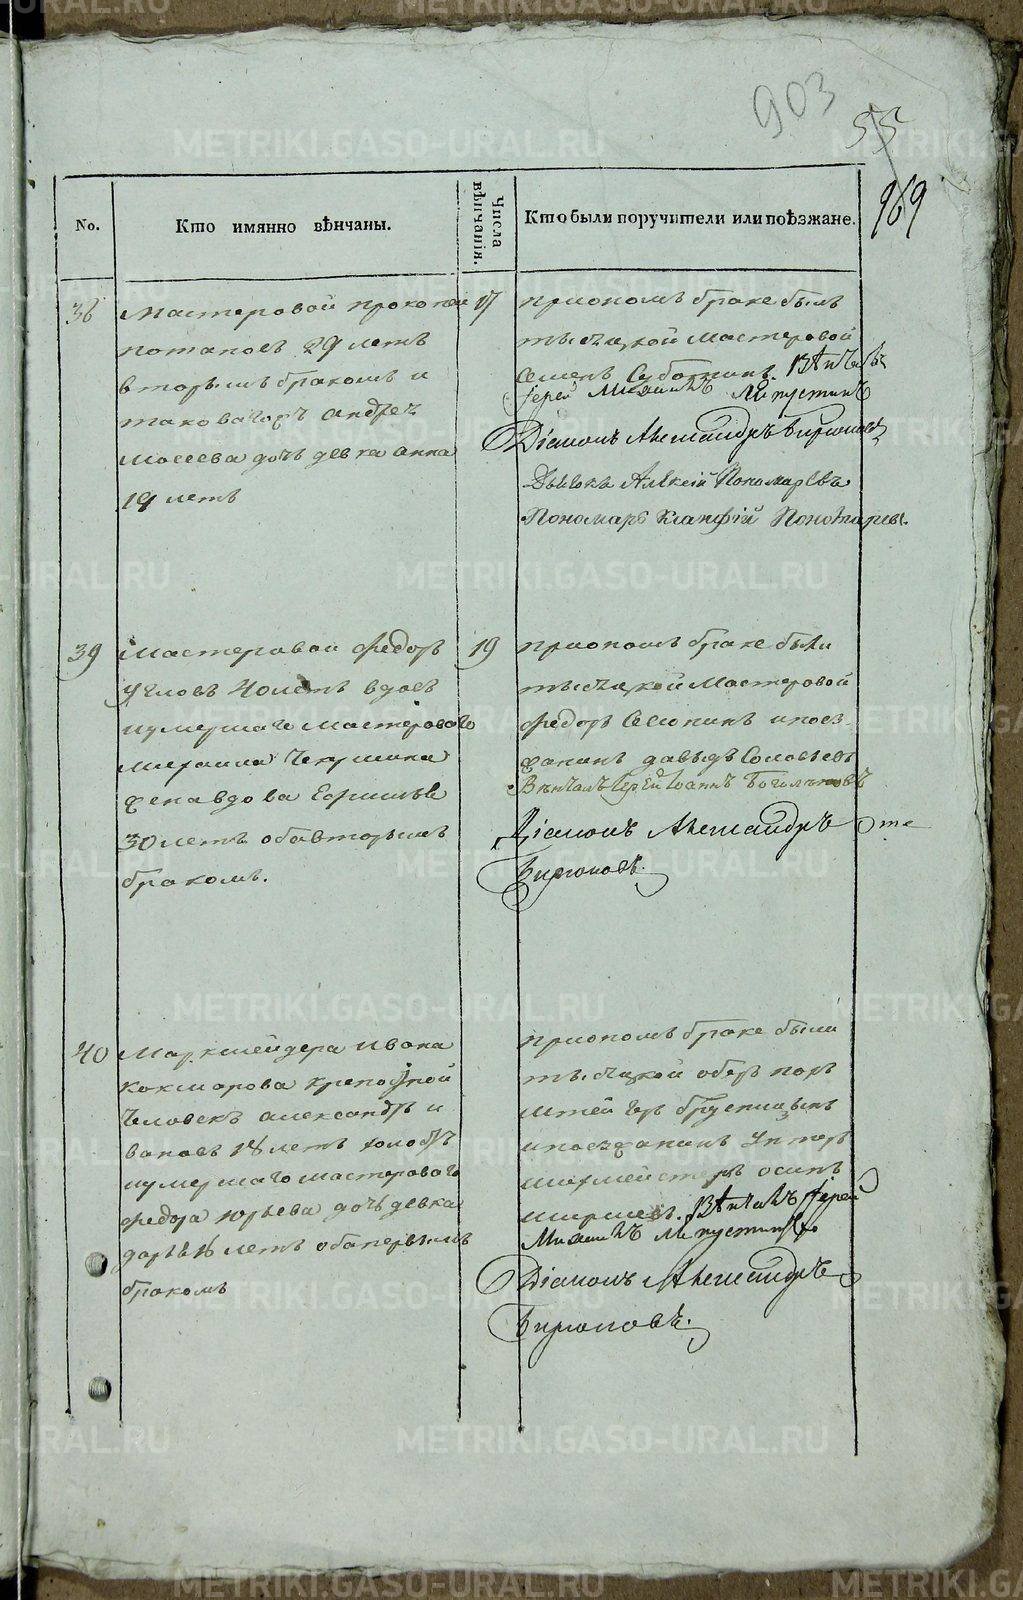 903
55
969
No.
Кто имянно вѣнчаны.
Числа вѣнчанія.
Кто были поручители или поѣзжане.
38
Мастеровой прокопей
потаповъ 29 летъ
вторымъ бракомъ и
таковагожъ андрея
Мосеева дочь девка анна
19 летъ
17
приономъ браке былъ
тысяцкой Мастеровой
Семенъ Суботинъ. Вѣнчалъ
Іерей Михаилъ
Діаконъ Александръ Бирюковъ
Дьячокъ Алѣксій Пономаревъ
Пономарь Пономаревъ.
39
Мастеровои федоръ
угловъ 40летъ вдовъ
иумершаго Мастероваго
михаила Чекушина
жена вдова Ефимья
30 летъ оба вторымъ
бракомъ.
19
приономъ браке были
тысяцкой Мастеровой
федоръ Селюнинъ ипоез-
жанинъ давыдъ Соловьевъ
Вѣнчалъ Іерей Іоаннъ
Діаконъ Александръ
Бирюковъ.
40
Маркшейдера ивана
крепосной
Человекъ александръ и
вановъ 18 летъ холостъ
иумершаго мастероваго
федора юрьева дочь девка
дарья летъ оба первымъ
бракомъ
приономъ браке были
тысяцкой оберъ
брусницынъ
ипоезжанинъ Унтеръ
шихмейстеръ осипъ
Вѣнчалъ Іерей
Михаилъ
Діаконъ Александръ
Бирюковъ.
METRIKI.GASO-URAL.RU